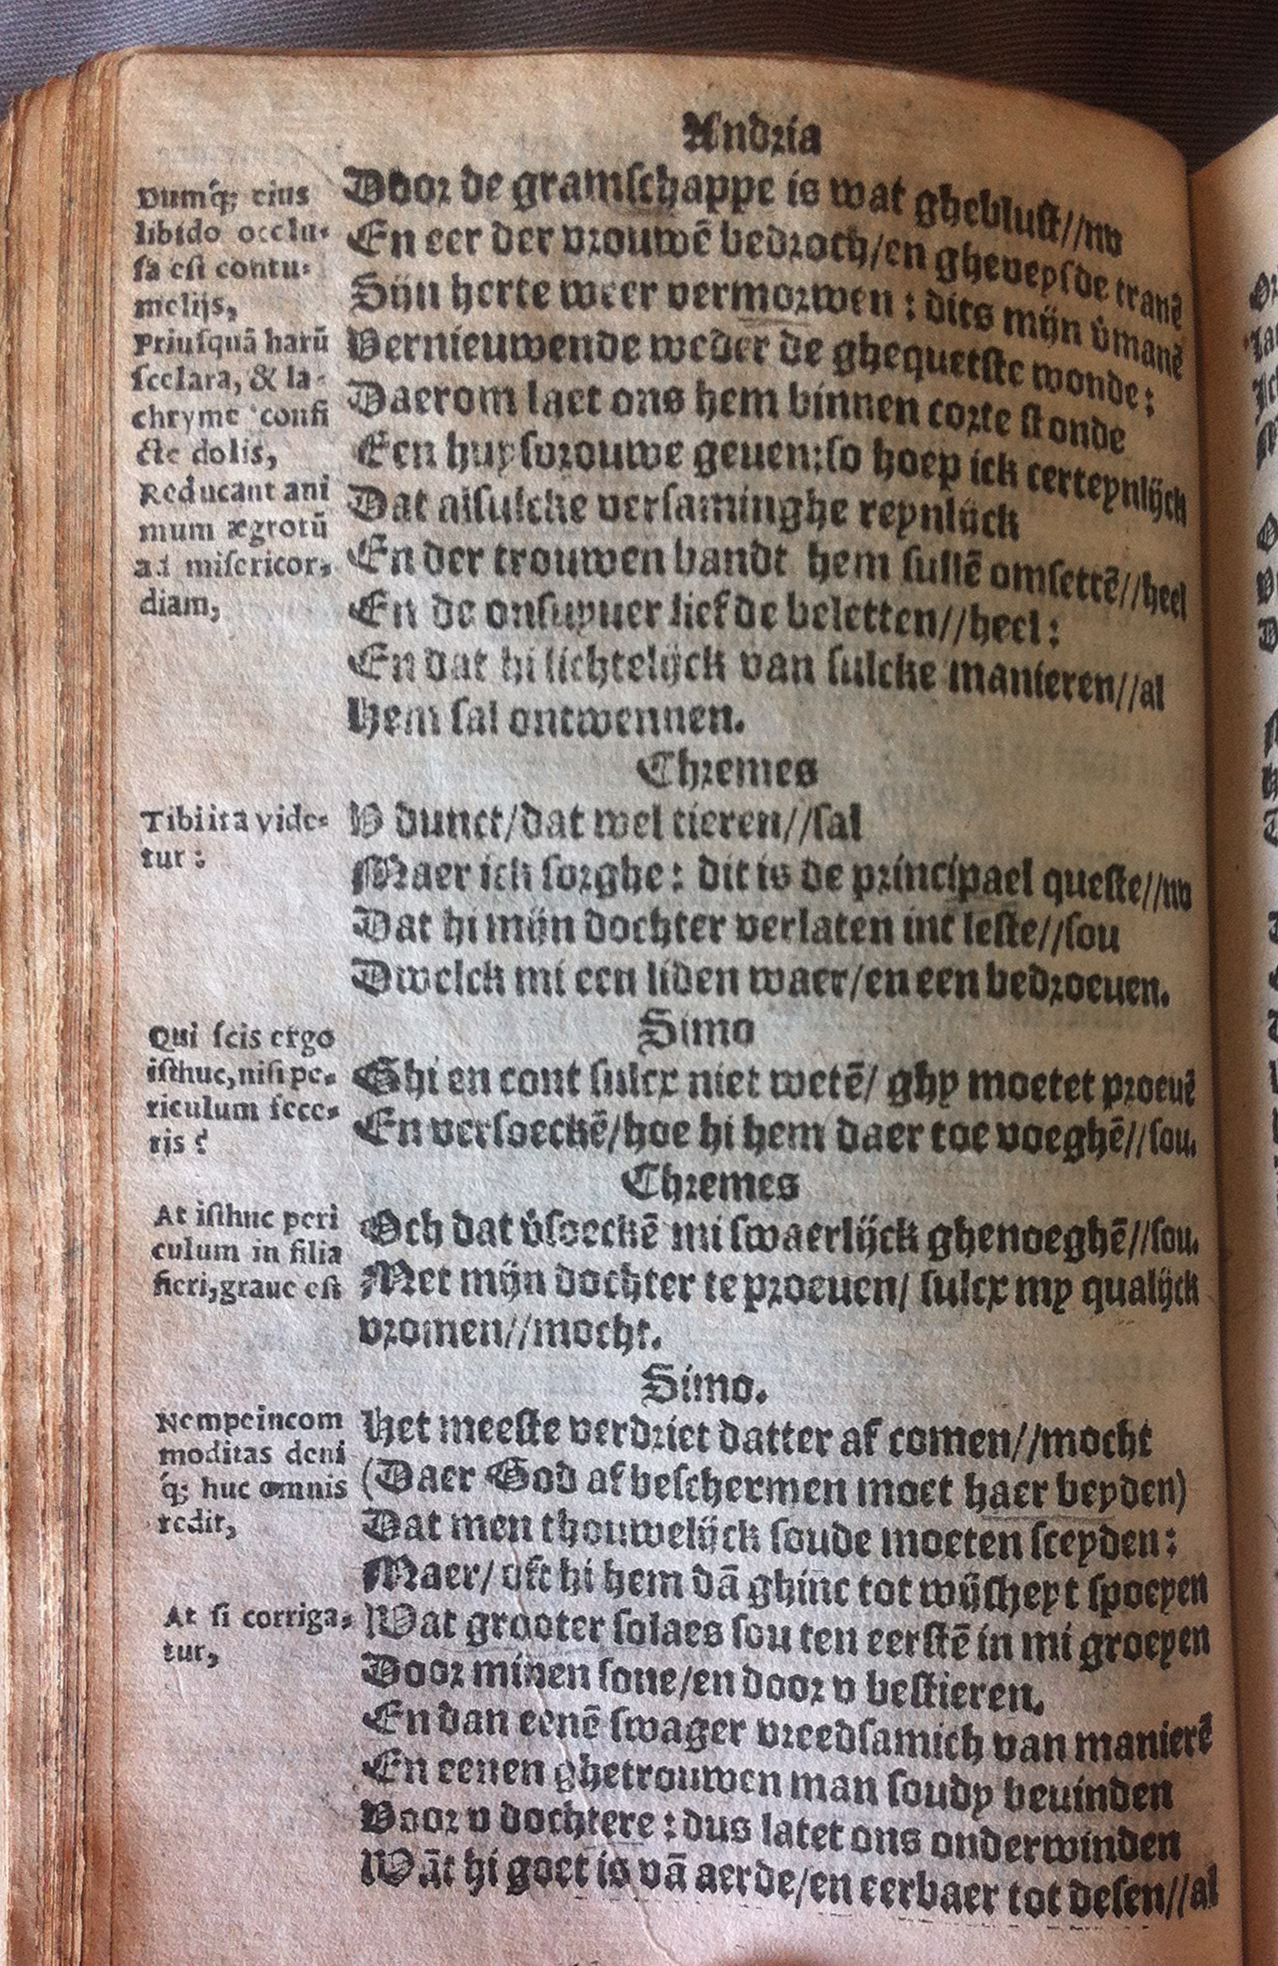 Andria
Dumq́; eius
libido occlu-
sa est contu-
melijs,
Priusquā harū
scelara, & la-
chryme confi
ctę dolis,
Reducant ani
mum ægrotū
ad misericor-
diam,
Door de gramschappe is wat ghebluscht//nv
En eer der vrouwē bedroch/en gheveysde tranē
Sijn herte weer vermorwen : dits mijn v̓manē
Vernieuwende weder de ghequetste wonde:
Daerom laet ons hem binnen corte stonde
Een huysvrouwe geven:so hoep ick certeynlijck
Dat alsulcke versaminghe reynlijck
En der trouwen bandt hem sullē omsettē//heel
En de onsuyuer liefde beletten//heel:
En dat hi lichtelijck van sulcke manieren//al
Hem sal ontwennen.
Chremes
Tibi ita vide-
tur:
V dunct/dat wel tieren//sal
Maer ick sorghe: dit is de principael queste//nv
Dat hi mijn dochter verlaten int leste//sou
Dwelck mi een liden waer/en een bedroeuen.
Simo
Qui scis ergo
isthuc, nisi pe-
riculum fece-
ris?
Ghi en cont sulcx niet wetē/ ghy moetet proeuē
En versoeckē/hoe hi hem daer toe voeghē//sou.
Chremes
At isthuc peri
culum in filia
fieri,graue est
Och dat v̓soeckē mi swaerlijck ghenoeghē//sou.
Met mijn dochter te proeuen/ sulcx my qualijck
vromen//mocht.
Simo.
Nempeincom
moditas deni
q́; huc omnis
redit,
Het meeste verdriet datter af comen//mocht
(Daer God af beschermen moet haer beyden)
Dat men thouwelijck soude moeten sceyden:
Maer/ oft hi hem dā ghinc tot wijsheyt spoeyen
At si corriga-
tur,
Wat grooter solaes sou ten eerstē in mi groeyen
Door minen sone/en door v bestieren.
En dan eenē swager vreedsamich van manierē
En eenen ghetrouwen man soudy beuinden
Voor v dochtere : dus latet ons onderwinden
Wāt hi goet is vā aerde/en eerbaer tot desen//al